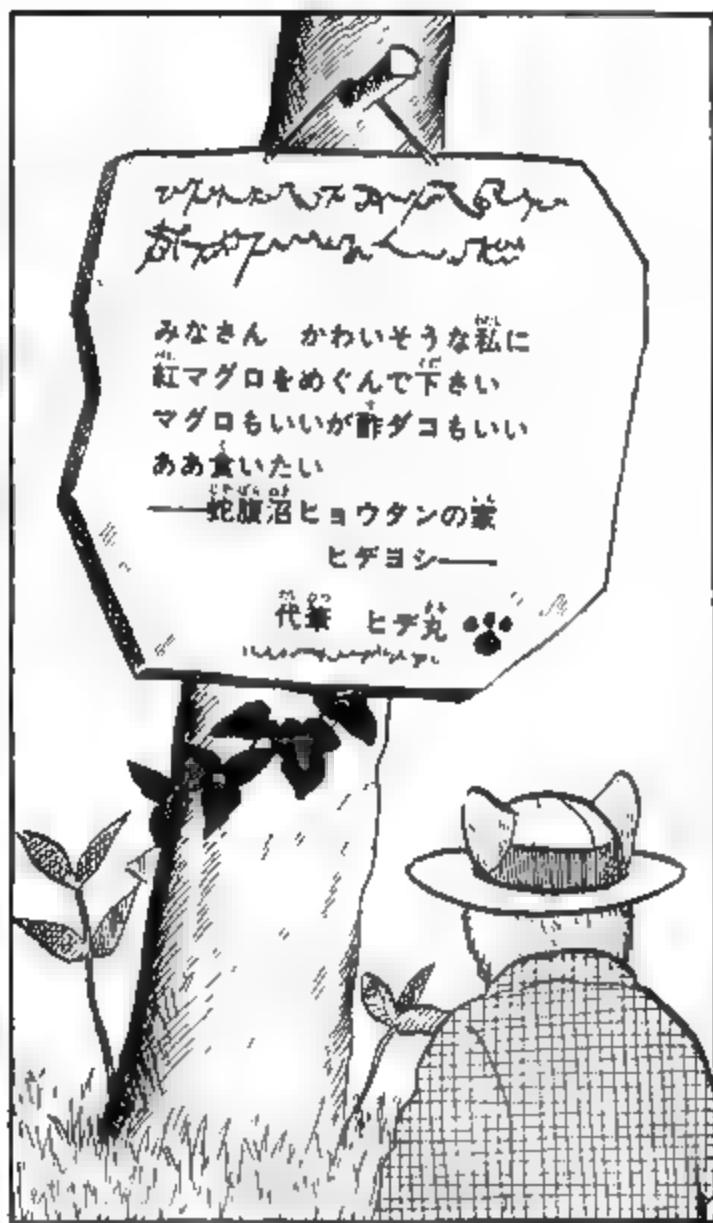 みなさん　かわいそうな私に
紅マグロをめぐんで下さい
マグロもいいが酢ダコもいい
ああ食いたい
――蛇腹沼ヒョウタンの家
ヒデヨシ――
代筆　ヒデ丸